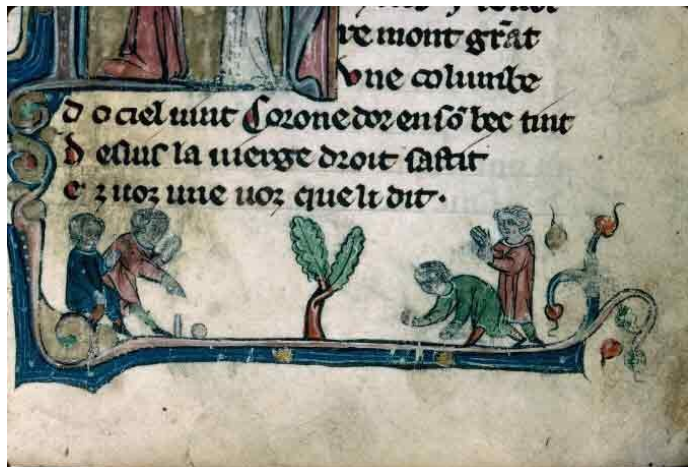 vemont grāt
vne columbe
d o ciel uint Corone dor en sō bec tint
d esius la uierge droit sastit
e z uoz une uoz que li dit.